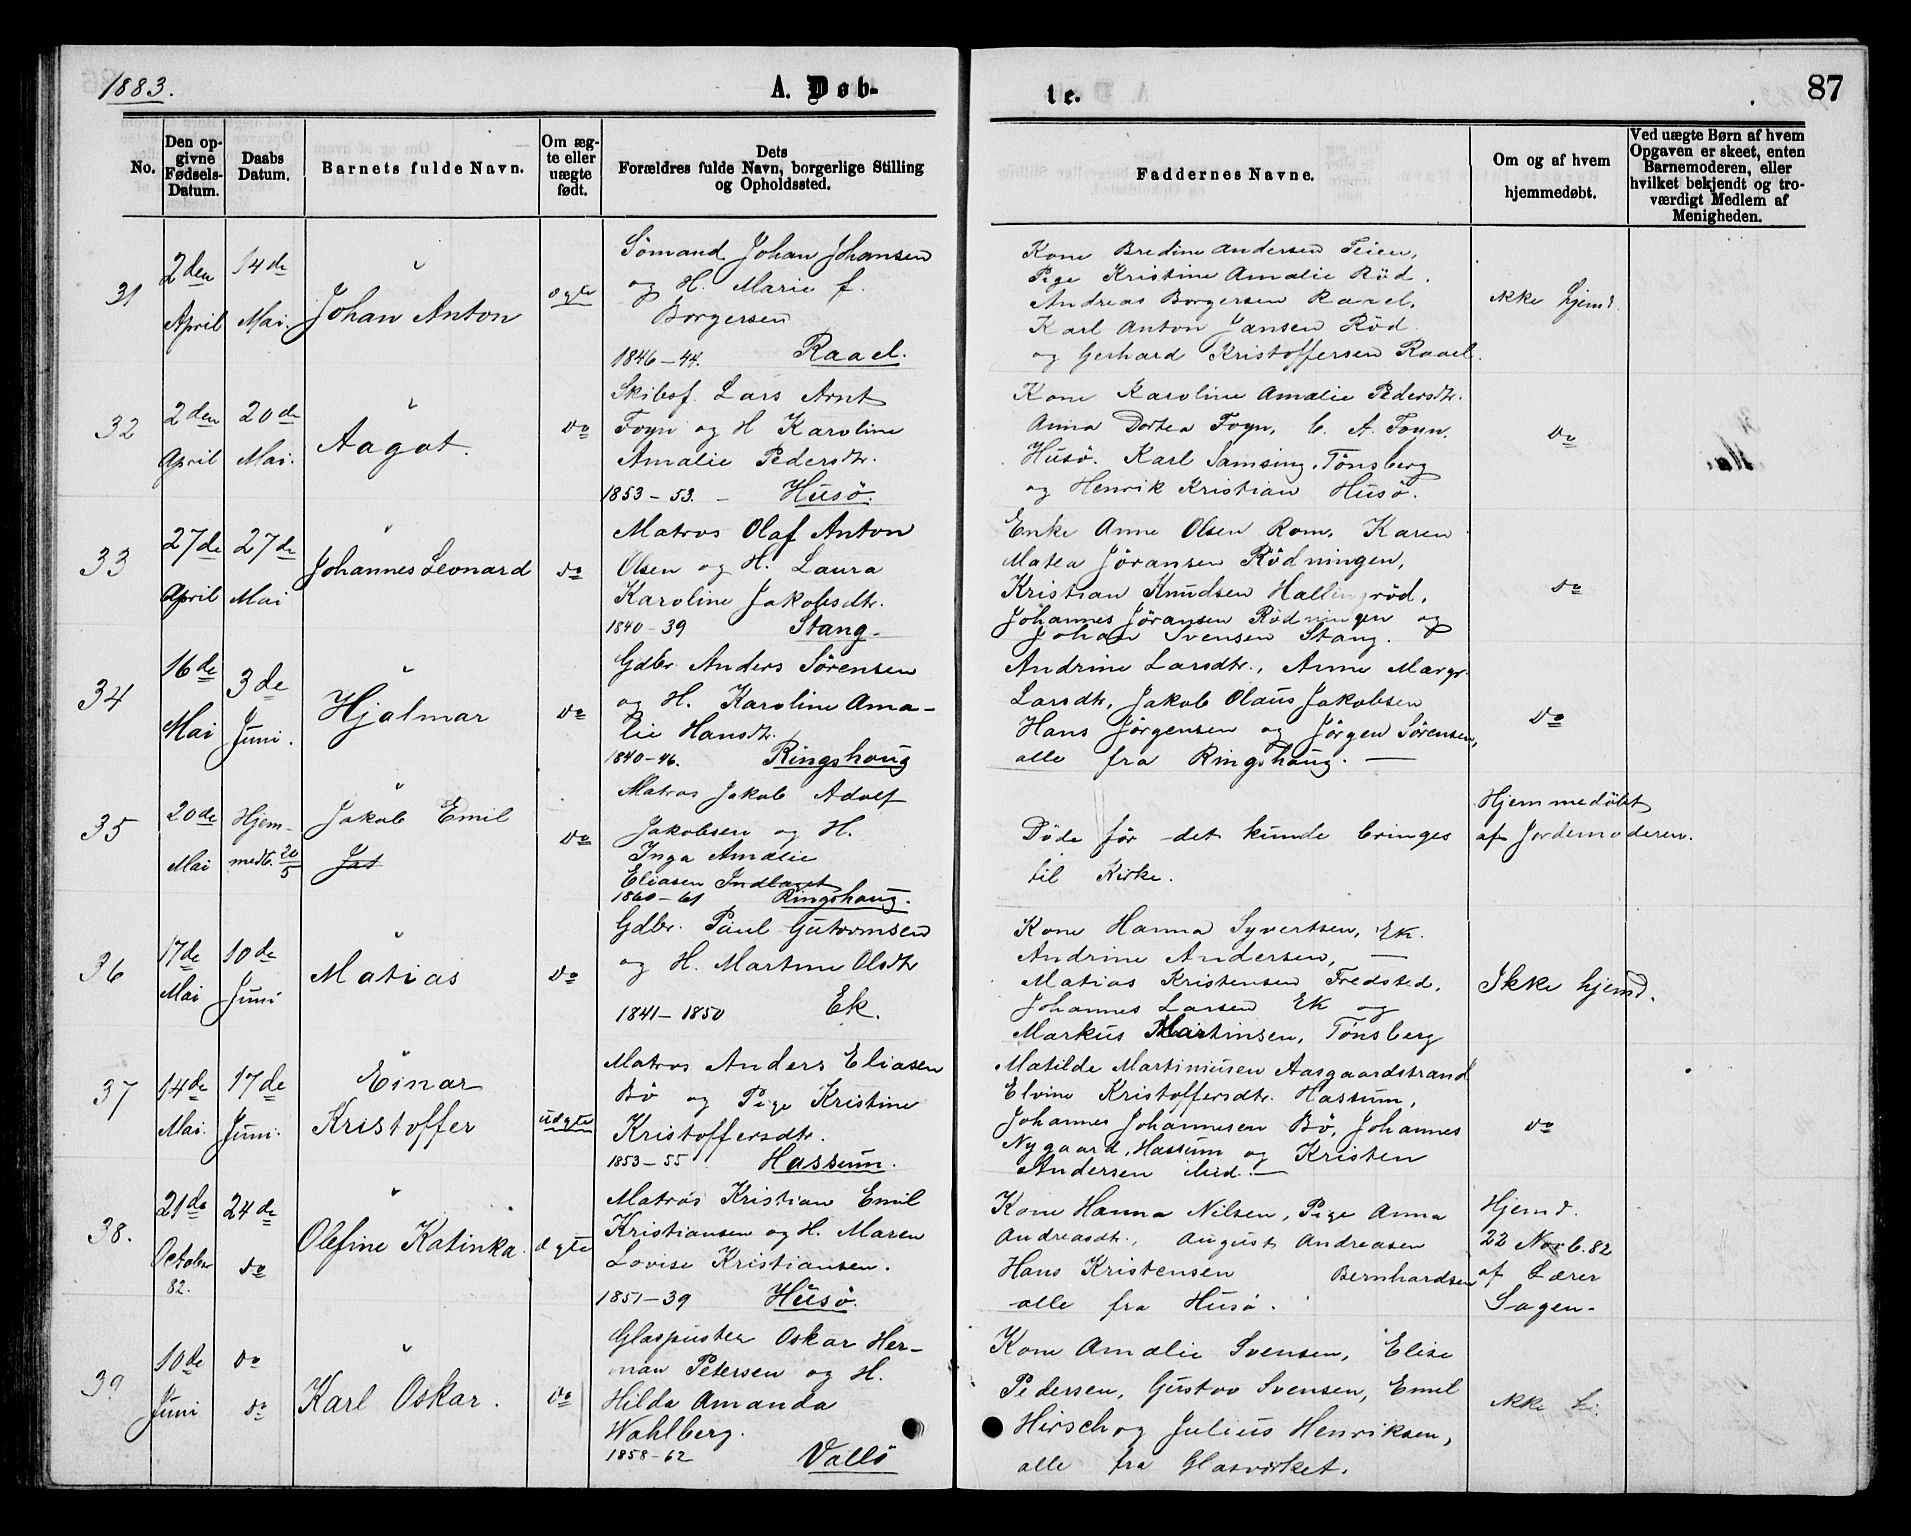 1883.
A. Døb-
te.
87
No.
Den op-
givne
Fødsels-
Datum.
Daabs
Datum.
Barnets fulde Navn.
Om æg-
te eller
uægte
født.
Dets
Forældres fulde Navn, borgerlige Stilling
og Opholdssted.
Faddernes Navne.
Om og af hvem
hjemmedøbt.
Ved uægte Børn af hvem
Opgaven er skeet, enten
Barnemoderen, eller
hvilket bekjendt og tro-
værdigt Medlem af
Menigheden.
31
2den
April
14de
Mai.
Johan Anton
ægte
Sømand Johan Johansen
og H. Marie f.
Borgersen
1846-44. Raael.
Kone Bredine Andersen Teien,
Pige Kristine Amalie Rød.
Andreas Borgersen Raael,
Karl Anton Jansen Rød
og Gerhard Kristoffersen Raael.
ikke hjemd.
32
2den
April
20de
Mai.
Aagot.
do
Skibsf. Lars Arnt
Foyn og H Karoline
Amalie Pedersdtr.
1853-53. - Husø.
Kone Karoline Amalie Pedersdtr.
Anna Dortea Foyn, C. A. Foyn,
Husø. Karl Samsing, Tønsberg
og Henrik Kristian Husø.
do
33
27de
April
27de
Mai
Johannes Leonard
do
Matros Olaf Anton
Olsen og H. Laura
Karoline Jakobsdtr.
1840-39 Stang-
Enke Anne Olsen Rom, Karen
Matea Jøransen Rødningen,
Kristian Knudsen Hallingrød,
Johannes Jøransen Rødningen og
Johan Svensen Stang.
do
34
16de
Mai
3de
Juni.
Hjalmar
do
Gdbr. Anders Sørensen
og H. Karoline Ama-
lie Hansdtr.
1840-46. Ringshoug
Andrine Larsdtr., Anne Margr.
Larsdtr, Jakob Olaus Jakobsen
Hans Jørgensen og Jørgen Sørensen,
alle fra Ringshaug. -
do
35
20de
Mai
Hjem-
medb. 20/5
Jakob Emil
do
Matros Jakob Adolf
Jakobsen og H.
Inga Amalie
Eliasen Indlaget
1860-61 Ringshaug.
Døde før det kunde bringes
til Kirke.
Hjemmedøbt
af Jordemoderen.
36
17de
Mai
10de
Juni
Matias
do
Gdbr. Paul Gutormsen
og H. Martine Olsdtr
1841-1850 Ek.
Kone Hanna Syvertsen, Ek.
Andrine Andersen, -
Matias Kristensen Fredsted,
Johannes Larsen Ek og
Markus Martinsen, Tønsberg
Ikke hjemd.
37
14de
Mai.
17de
Juni.
Einar
Kristoffer
uægte
Matros Anders Eliasen
Bø og Pige Kristine
Kristoffersdtr.
1853-55 Hassum.
Matilde Martiniusen Aasgaardstrand
Elvine Kristoffersdtr. Hassum,
Johannes Johannesen Bø, Johannes
Nygaard, Hassum og Kristen
Andersen ibid. -
do
38.
21de
October
82.
24de
do
Olefine Katinka.
ægte
Matros Kristian Emil
Kristiansen og H. Maren
Lovise Kristiansen.
1851-39 Husø.
Kone Hanna Nilsen, Pige Anna
Andreasdtr., August Andreasen
Hans Kristensen Bernhardsen
alle fra Husø.
Hjemd.
22 Novb. 82
af Lærer
Sagen-
39
10de
Juni
do
do
Karl Oskar.
do
Glaspuster Oskar Her-
man Petersen og H.
Hilda Amanda
Wahlberg.
1858-62 Vallø
Kone Amalie Svensen, Elise
Pedersen, Gustav Svensen, Emil
Hirsch og Julius Henriksen,
alle fra Glasværket.
ikke hj.